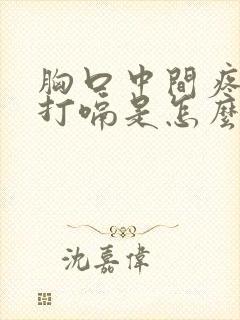 胸口中間疼
打嗝是怎麼
沈嘉偉